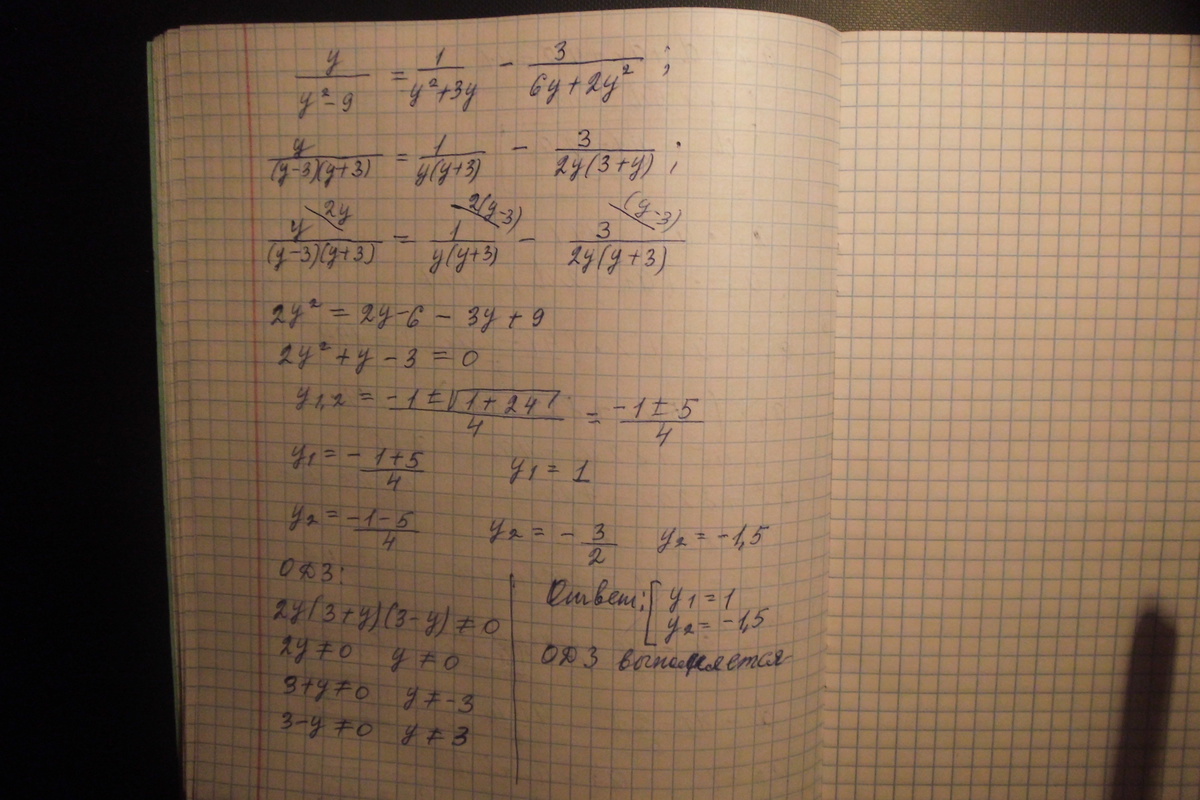 y/(y²-9) = 1/(y²+3y) - 3/(6y+2y²) ;
y/((y-3)(y+3)) = 1/(y(y+3)) - 3/(2y(3+y)) ;
2y 2(y-3) (y-3)
y/((y-3)(y+3)) = 1/(y(y+3)) - 3/(2y(y+3))
2y² = 2y-6 - 3y + 9
2y² + y - 3 = 0
y1,2 = (-1 ± √(1+24))/4 = (-1 ± 5)/4
y1 = -(1+5)/4 y1 = 1
y2 = (-1-5)/4 y2 = -3/2 y2 = -1,5
ОДЗ:
2y(3+y)(3-y) ≠ 0
2y ≠ 0 y ≠ 0
3+y ≠ 0 y ≠ -3
3-y ≠ 0 y ≠ 3
Ответ: [ y1 = 1
y2 = -1,5
ОДЗ выполняется